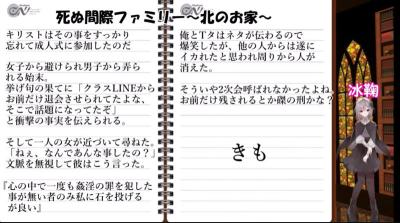 死ぬ間際ファミリー〜北のお家〜
キリストはその事をすっかり
忘れて成人式に参加したのだ
女子から避けられ男子から弄ら
れる始末。
挙げ句の果てに「クラスLINEから
お前だけ退会させられてたよな、
そこで話題になってたぞ」
と衝撃の事実を伝えられる。
そして一人の女が近づいて尋ねた。
「ねぇ、なんであんな事したの？」
文脈を無視して彼はこう言った。
『心の中で一度も姦淫の罪を犯した
事が無い者のみ私に石を投げる
が良い』
俺とTタはネタが伝わるので
爆笑したが、他の人からは遂に
イカれたと思われ周りから人が
消えた。
そういや2次会呼ばれなかったよね。
お前だけ残されるとか磔の刑かな？
きも
氷鞠